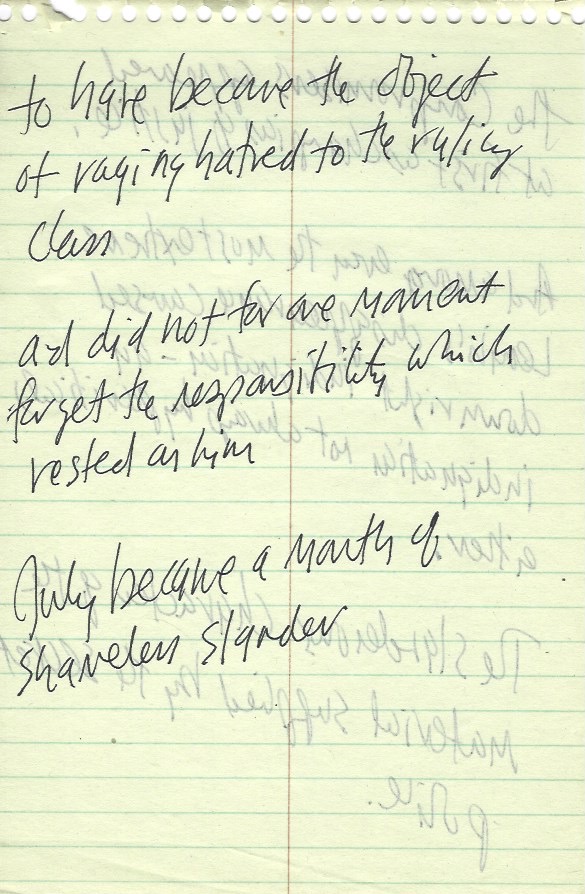 to have became the object
of raging hatred to the ruling
class
and did not for one moment
forget the responsibility which
rested on him
July became a month of
shameless slander